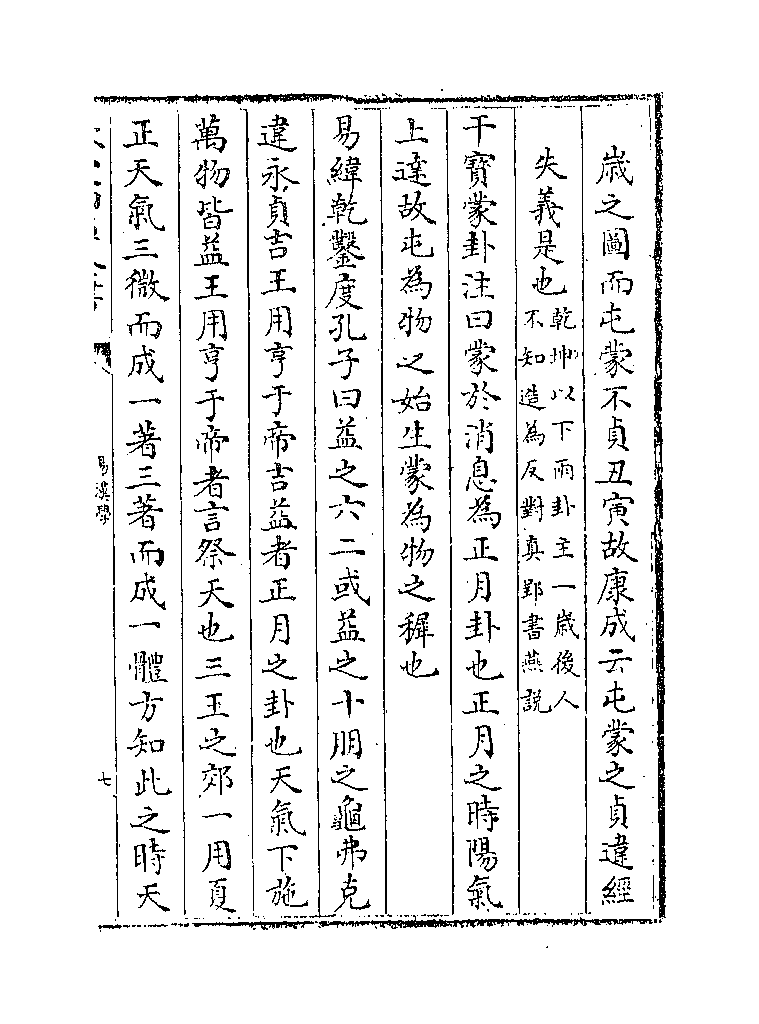 歳之圖而屯蒙不貞丑寅故康成云屯蒙之貞違經
失義是也乾坤以下兩卦主一歳後人
不知造為反對真郢書燕説
干寶蒙卦注曰蒙於消息為正月卦也正月之時陽氣
上達故屯為物之始生蒙為物之穉也
易緯乾鑿度孔子曰益之六二或益之十朋之龜弗克
違永貞吉王用亨于帝吉益者正月之卦也天氣下施
萬物皆益王用亨于帝者言祭天也三王之郊一用夏
正天氣三微而成一著三著而成一體方知此之時天
易漢學
七